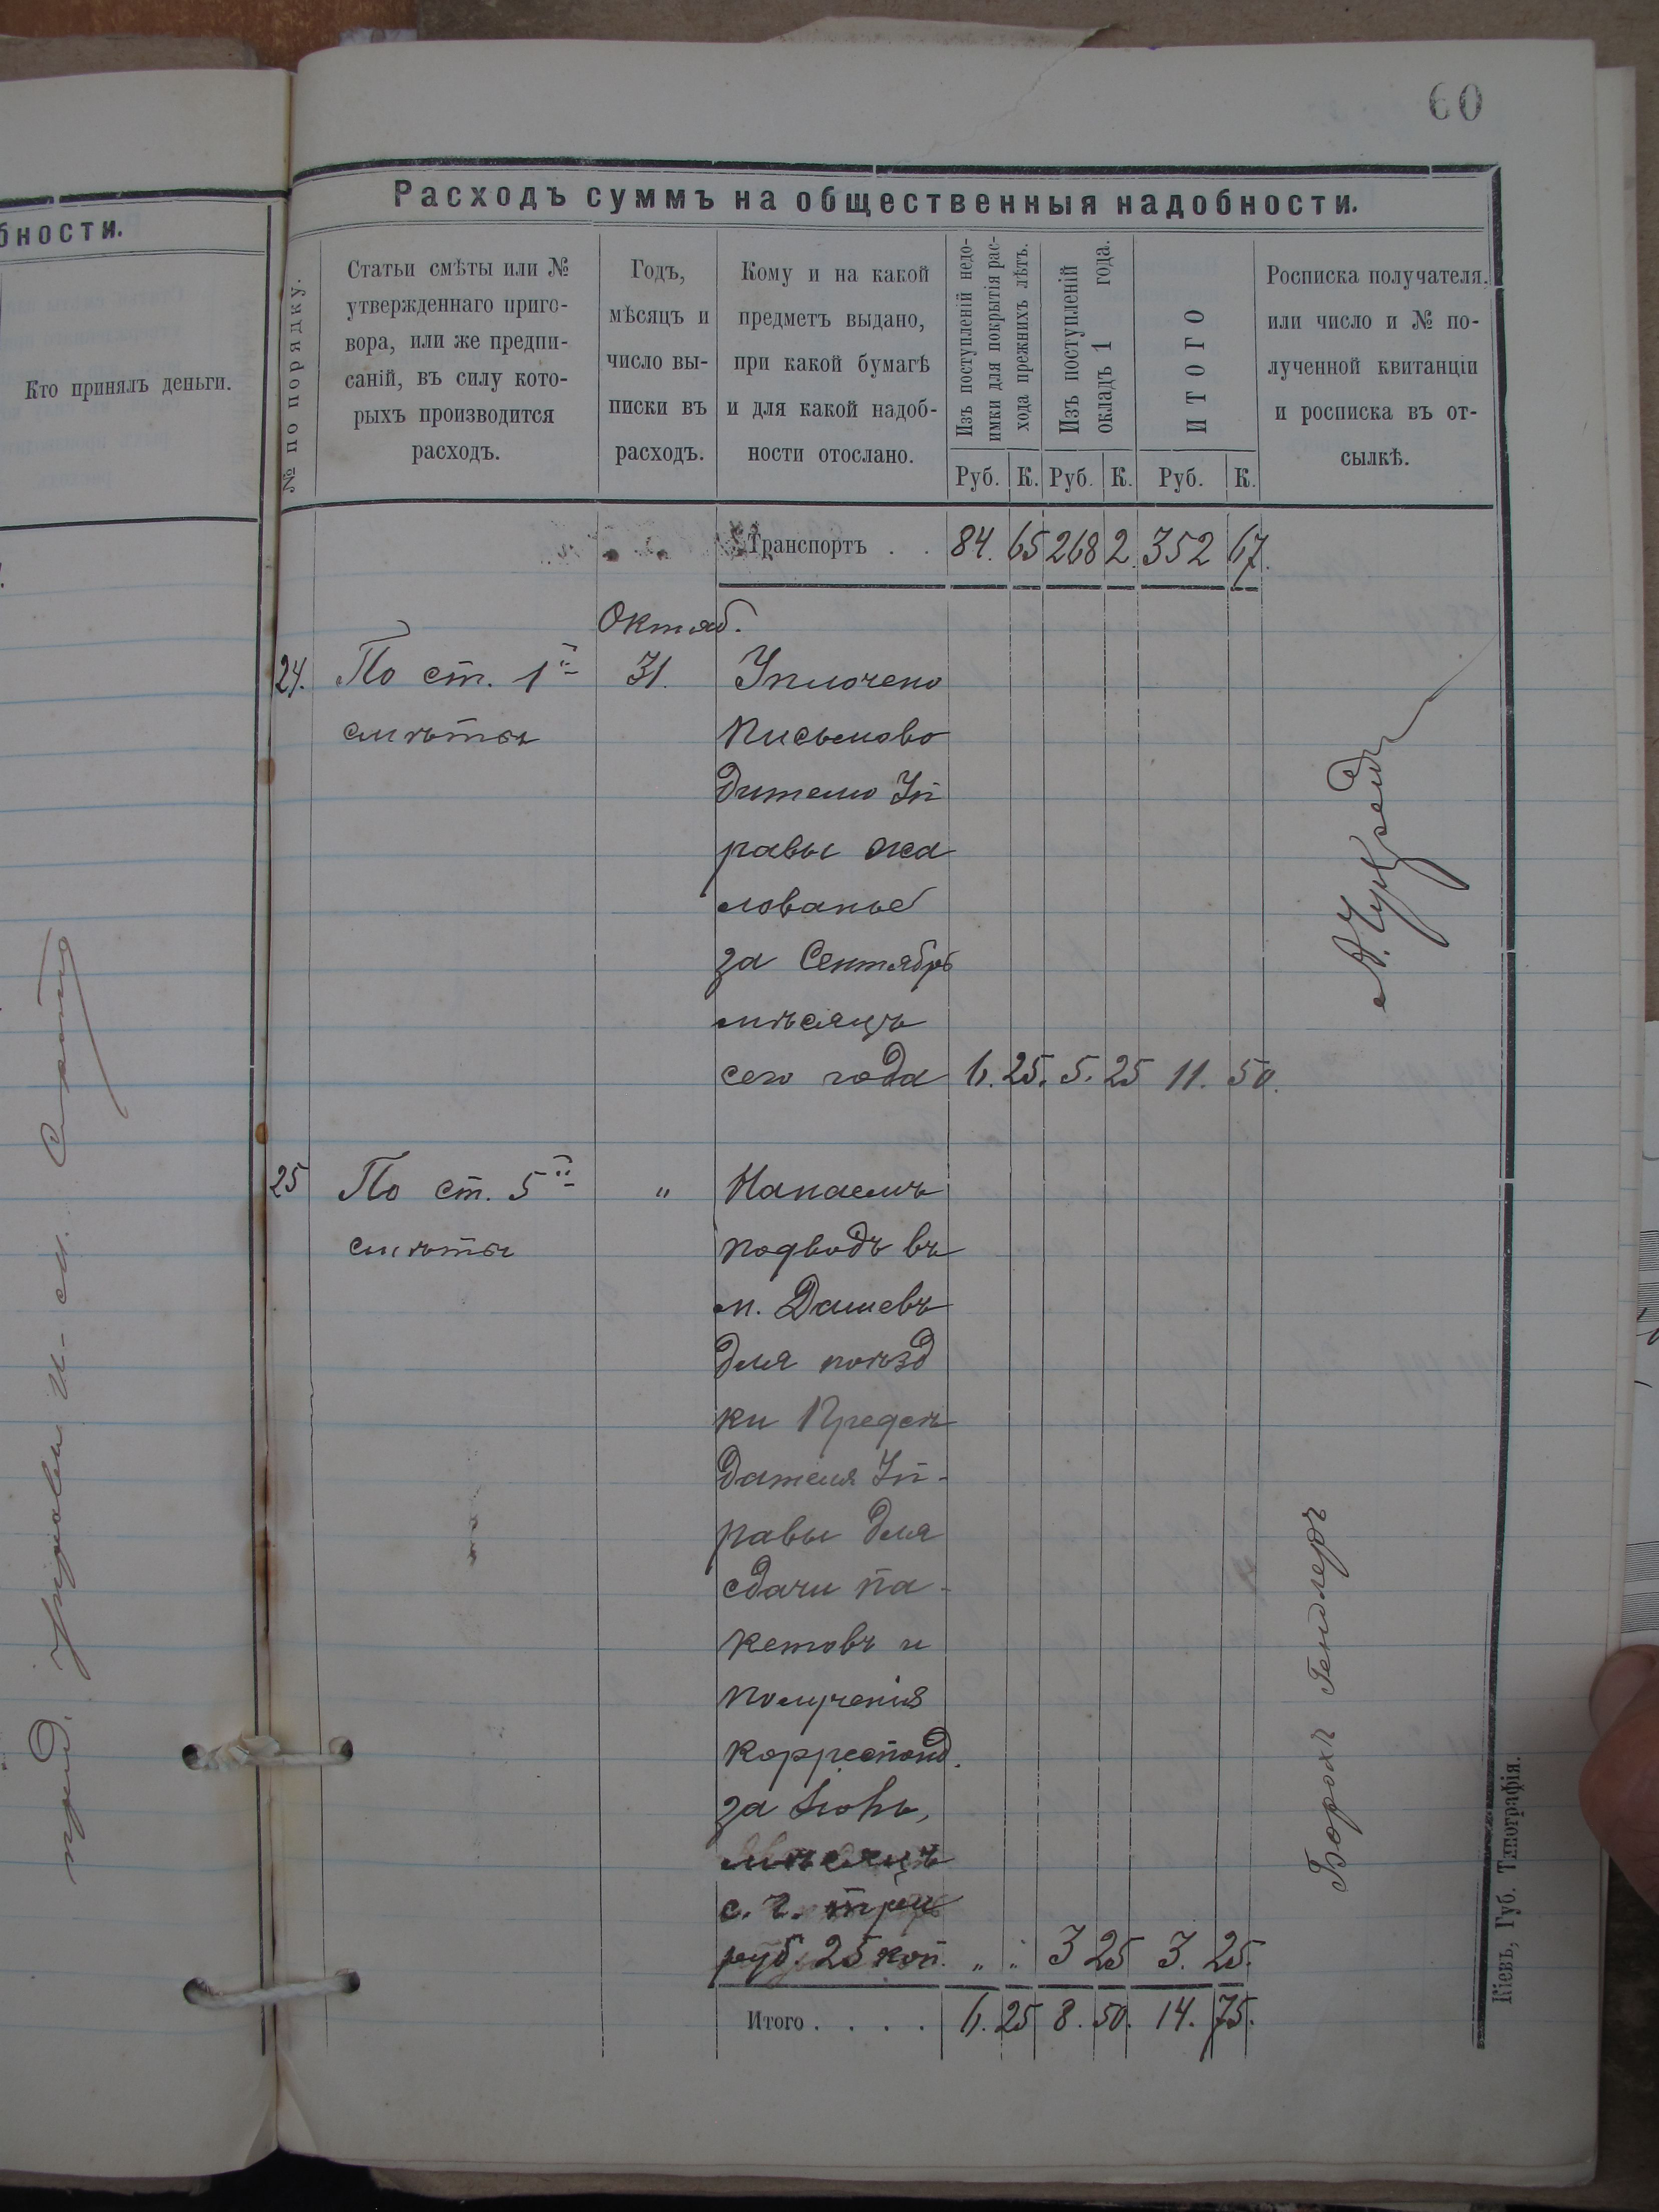 бности.
Кто принялъ деньги.
60
Расходъ суммъ на общественныя надобности.
№ по порядку.
Статьи смѣты или №
утвержденнаго приго-
вора, или же предпи-
саній, въ силу кото-
рыхъ производится
расходъ.
Годъ,
мѣсяцъ и
число вы-
писки въ
расходъ.
Кому и на какой
предметъ выдано,
при какой бумагѣ
и для какой надоб-
ности отослано.
Изъ поступленій недо-
имки для покрытія рас-
хода прежнихъ лѣтъ.
Изъ поступленій
окладъ 1 года.
ИТОГО
Руб. К. Руб. К. Руб. К.
Росписка получателя,
или число и № по-
лученной квитанціи
и росписка въ от-
сылкѣ.
Транспортъ . . 84. 65 268 2. 352 67.
Октяб.
24. По ст. 1й 31. Уплочено
смѣты Письмово
дителю Уп
равы жа
лованье
за Сентябрь
мѣсяцъ
сего года 6. 25. 5. 25 11. 50.
25 По ст. 5й " Наемъ
смѣты подводъ въ
м. Дашевъ
для поѣзд
ки Предсѣ
дателя Уп-
равы для
сдачи па-
кетовъ и
полученія
корреспонд.
за Іюнь,
мѣсяцъ
с. г. три
руб. 25 коп. " " 3 25 3. 25.
Итого . . . . 6. 25 8. 50. 14. 75.
Борохъ Гендлеръ
Кіевъ, Губ. Типографія.